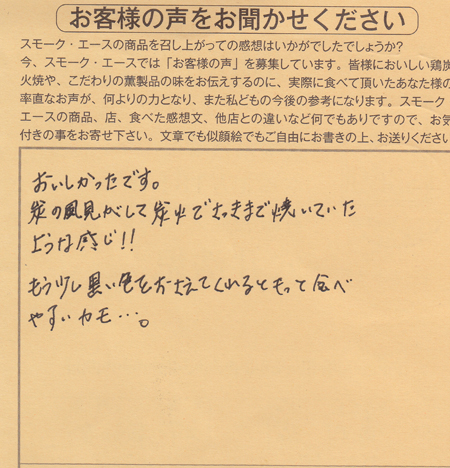 お客様の声をお聞かせください
スモーク・エースの商品を召し上がっての感想はいかがでしたでしょうか?
今、スモーク・エースでは「お客様の声」を募集しています。皆様においしい鶏炭
火焼や、こだわりの薫製品の味をお伝えするのに、実際に食べて頂いたあなた様の
率直なお声が、何よりの力となり、また私どもの今後の参考になります。スモーク
エースの商品、店、食べた感想文、他店との違いなど何でもありですので、お気
付きの事をお寄せ下さい。文章でも似顔絵でもご自由にお書きの上、お送りください
おいしかったです。
炭の風見がして炭火でさっきまで焼いていた
ような感じ!!
もう少し黒い色をおさえてくれるともっと食べ
やすいカモ…。